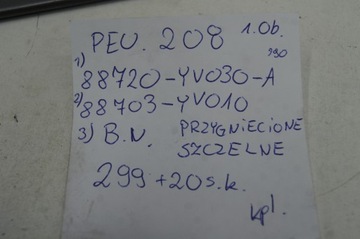 PEU. 208 1.0b.
190
1) 88720-YV030-A
2) 88703-YV010
3) B.N. PRZYGNIECIONE
SZCZELNE
299 +20 s.k.
kpl.